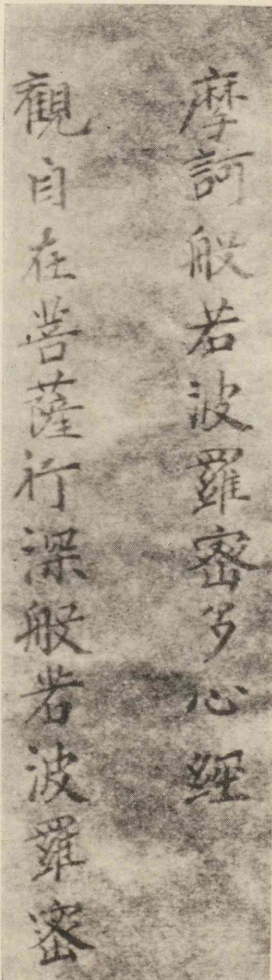 摩訶般若波羅蜜多心經
觀自在菩薩行深般若波羅蜜